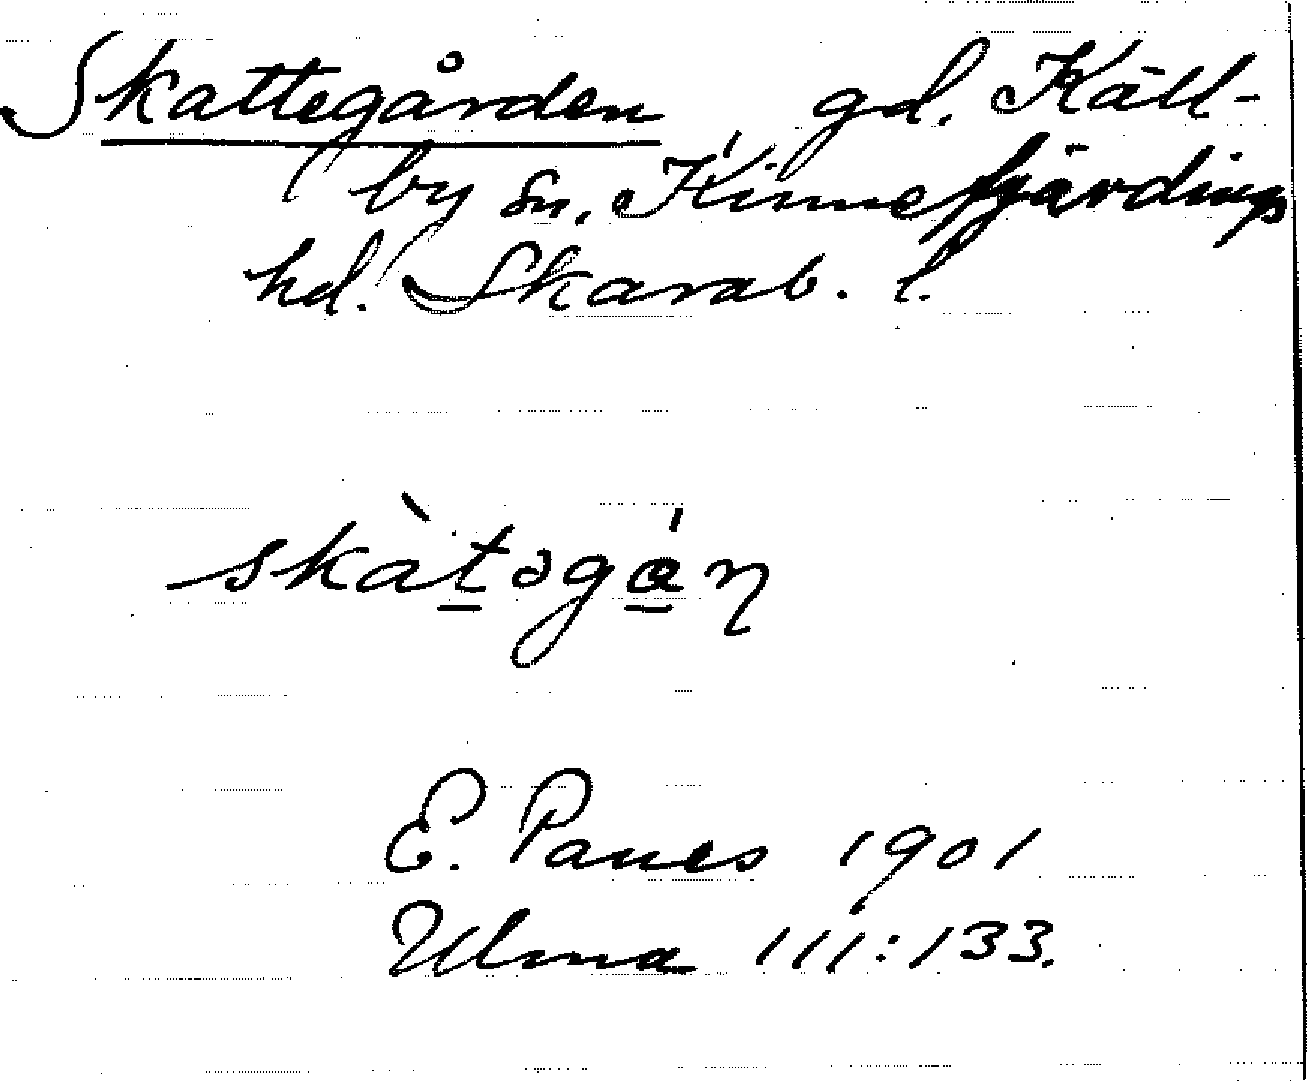 Skattegården gd. Käll-
by sn, Kinnefjärdings
hd. Skarab. l.
skàt̲əgá̲ŋ
E. Paues 1901
Ulma 111:133.